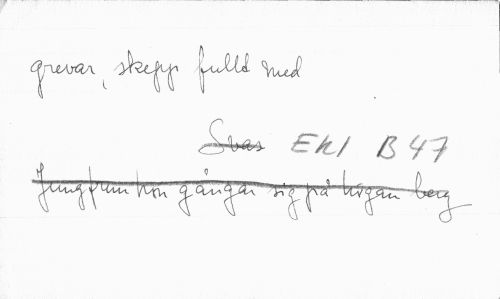 grevar, skepp fullt med
Svas EKI B 47
Jungfrun hon gångar sig på högan berg